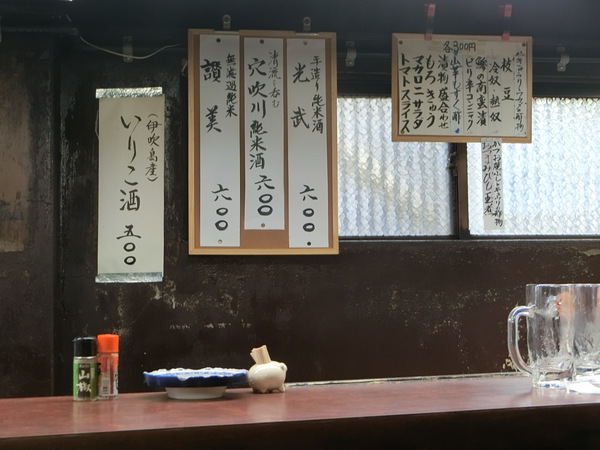 各300円
枝豆
冷奴 熱奴
ピリ辛コンニャク
小芋しすく酢
漬物盛合わせ
もろきゅう
マカロニサラダ
トマトスライス
手造り純米酒
光武 六〇〇
清流に呑む
穴吹川純米酒 六〇〇
無濾過純米
讃美 六〇〇
(伊吹島産)
いりこ酒 五〇〇
山椒